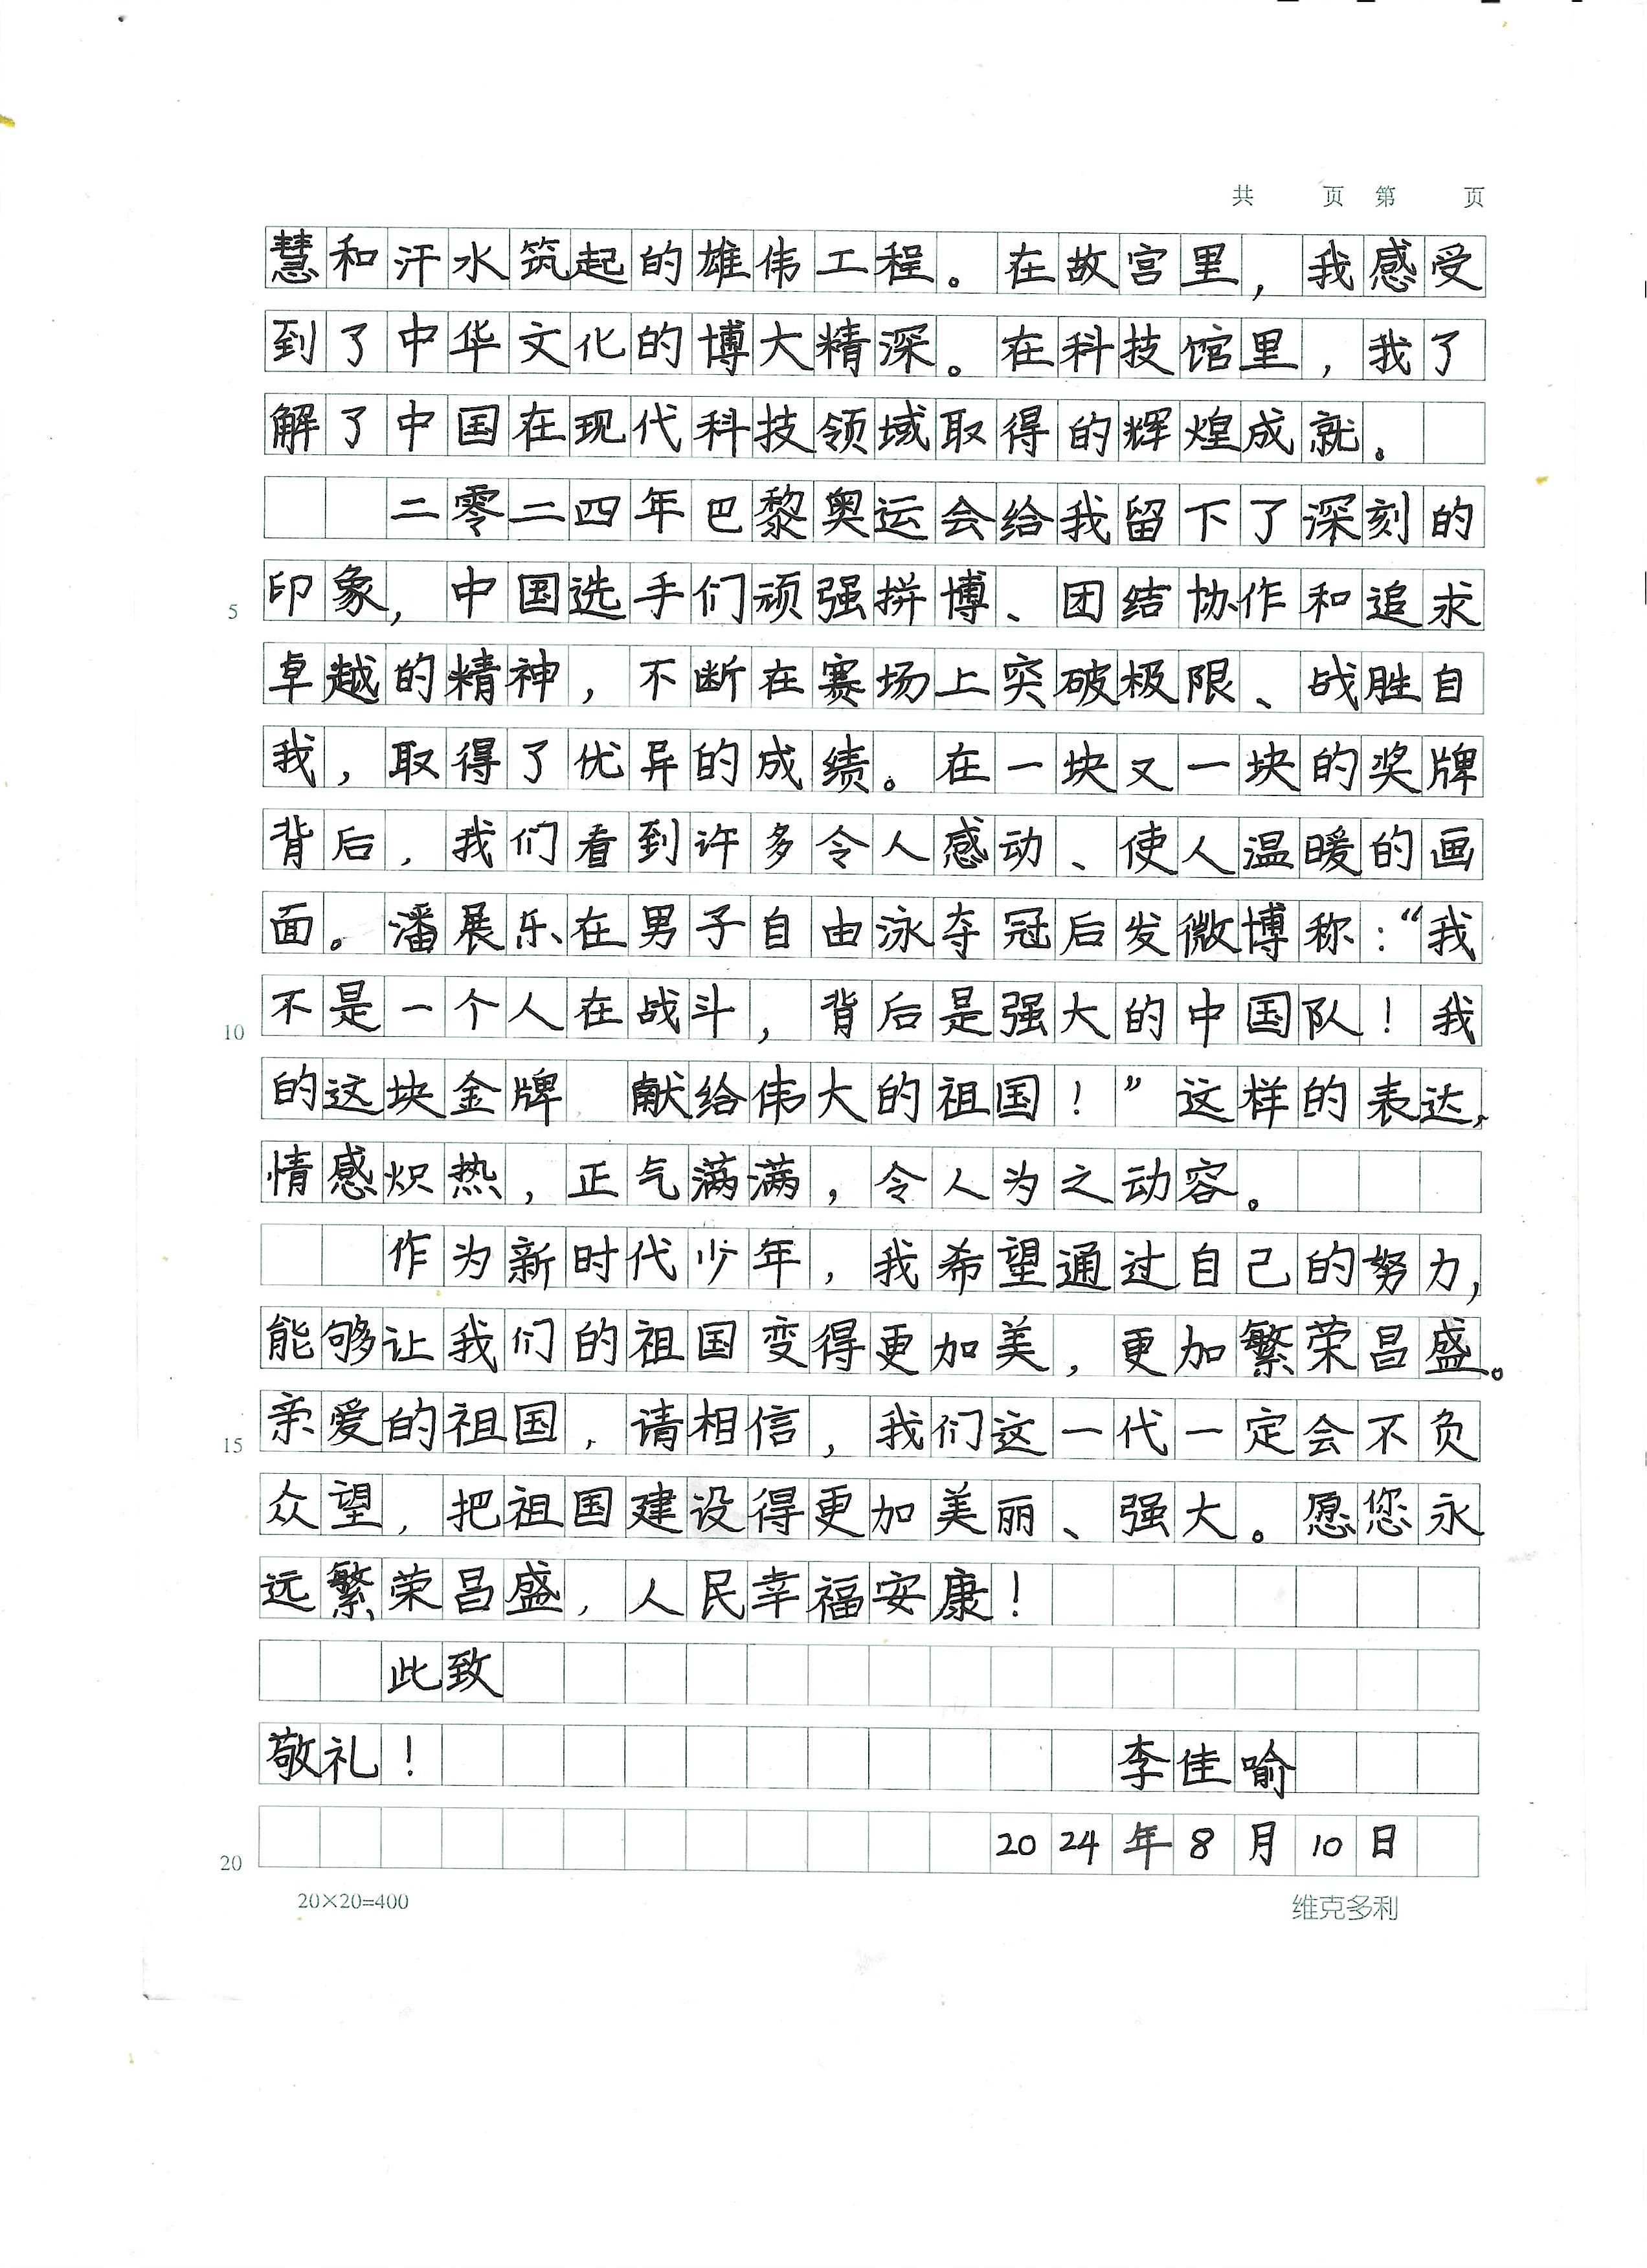 共 页 第 页
慧和汗水筑起的雄伟工程。在故宫里，我感受
到了中华文化的博大精深。在科技馆里，我了
解了中国在现代科技领域取得的辉煌成就。
二零二四年巴黎奥运会给我留下了深刻的
5 印象，中国选手们顽强拼博、团结协作和追求
卓越的精神，不断在赛场上突破极限、战胜自
我，取得了优异的成绩。在一块又一块的奖牌
背后，我们看到许多令人感动、使人温暖的画
面。潘展乐在男子自由泳夺冠后发微博称：“我
10 不是一个人在战斗，背后是强大的中国队！我
的这块金牌 献给伟大的祖国！”这样的表达，
情感炽热，正气满满，令人为之动容。
作为新时代少年，我希望通过自己的努力，
能够让我们的祖国变得更加美，更加繁荣昌盛。
15 亲爱的祖国，请相信，我们这一代一定会不负
众望，把祖国建设得更加美丽、强大。愿您永
远繁荣昌盛，人民幸福安康！
此致
敬礼！ 李佳喻
20 2024年8月10日
20×20=400 维克多利